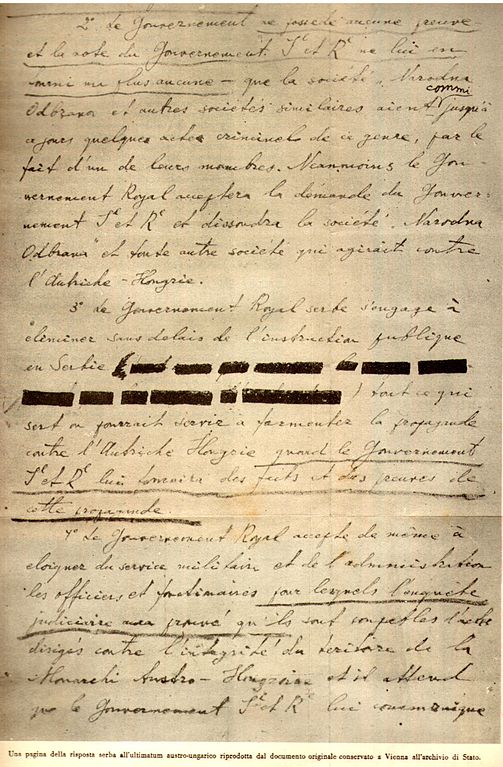 2º Le Gouvernement ne possède aucune preuve
et la note du Gouvernement Iᵉ et Rᵉ ne lui en
fourni non plus aucune – que la société „Narodna
commi
Odbrana et autres sociétés similaires aient jusqu'à
ce jours quelques actes criminels de ce genre, par le
fait d'un de leurs membres. Neanmoins le Gou-
vernement Royal acceptera la démande du Gouver-
nement Iᵉ et Rᵉ et dissoudra la société „Narodna
Odbrana" et toute autre société qui agirait contre
l'Autriche-Hongrie.
3º Le Gouvernement Royal serbe s'engage à
éliminer sans delais de l'instruction publique
en Serbie
) tout ce qui
sert ou pourrait servir à fermenter la propagande
contre l'Autriche Hongrie quand le Gouvernement
Iᵉ et Rᵉ lui fournira des faits et des preuves de
cette propagande.
4º Le Gouvernement Royal accepte de même à
eloigner du service militaire et de l'administration
les officiers et fonctionaires pour lesquels l'enquête
judiciaire aura prouvé qu'ils sont coupables d'actes
dirigés contre l'intégrité du territoire de la
Monarchi Austro-Hongroise et il attend
que le Gouvernement Iᵉ et Rᵉ lui communique
Una pagina della risposta serba all'ultimatum austro-ungarico riprodotta dal documento originale conservato a Vienna all'archivio di Stato.